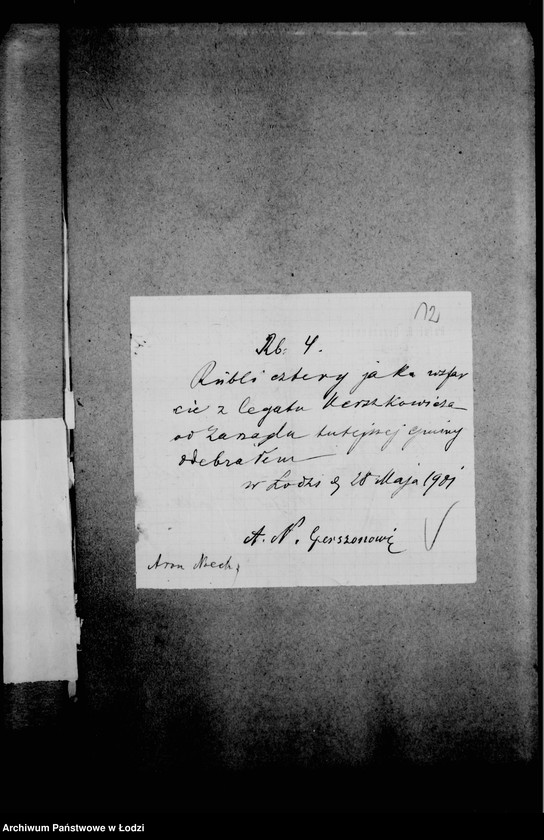 12
Rb. 4.
Rubli cztery jako wspar
cie z legatu Herszkowicza
od Zarządu tutejszej gminy
odebrałem
w Łodzi d 28 Maja 1901
A. N. Gerszonowi
Aron Nech
Archiwum Państwowe w Łodzi